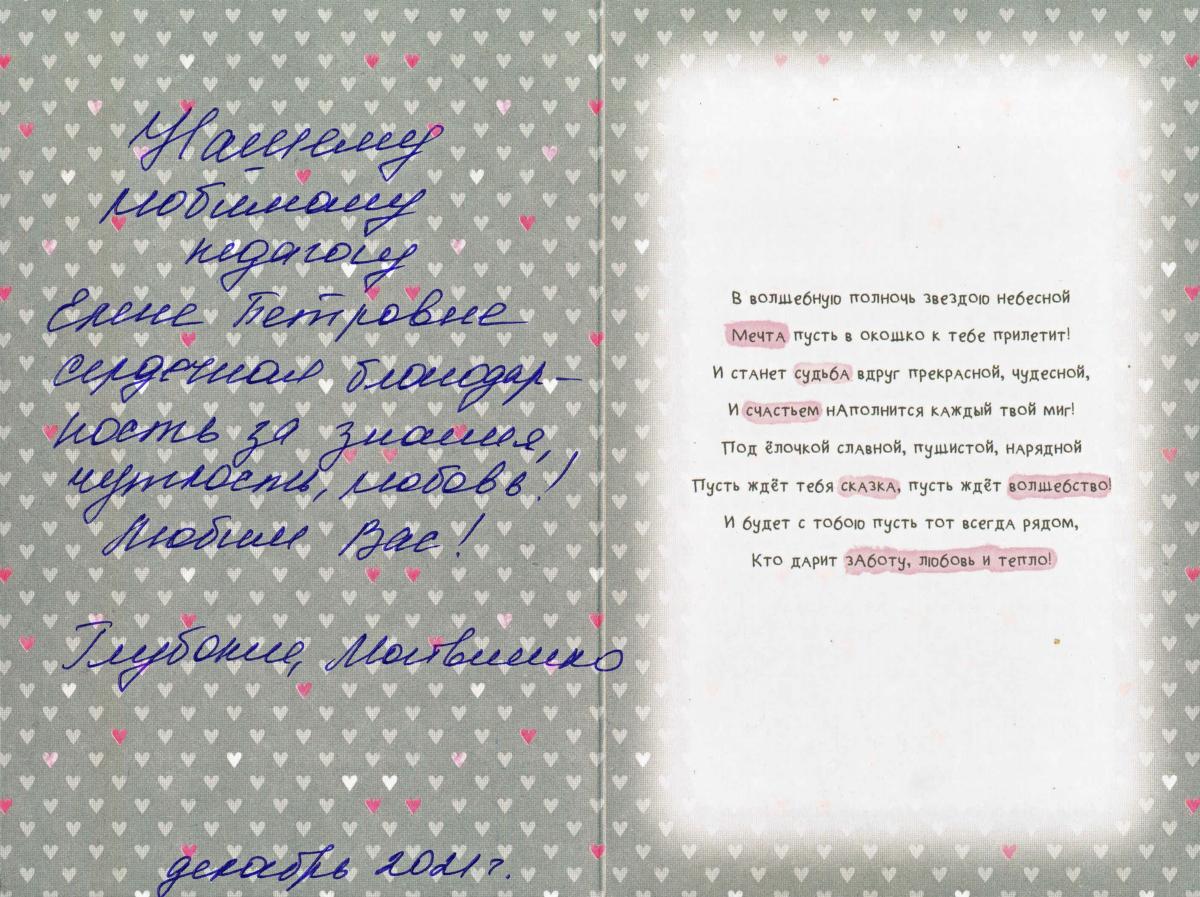 Нашему
любимому
педагогу
Елене Петровне
сердечная благодар-
ность за знания,
чуткость, любовь!
Любим Вас!
декабрь 2021 г.
В волшебную полночь звездою небесной
Мечта пусть в окошко к тебе прилетит!
И станет судьба вдруг прекрасной, чудесной,
И счастьем наполнится каждый твой миг!
Под ёлочкой славной, пушистой, нарядной
Пусть ждёт тебя сказка, пусть ждёт волшебство!
И будет с тобою пусть тот всегда рядом,
Кто дарит заботу, любовь и тепло!